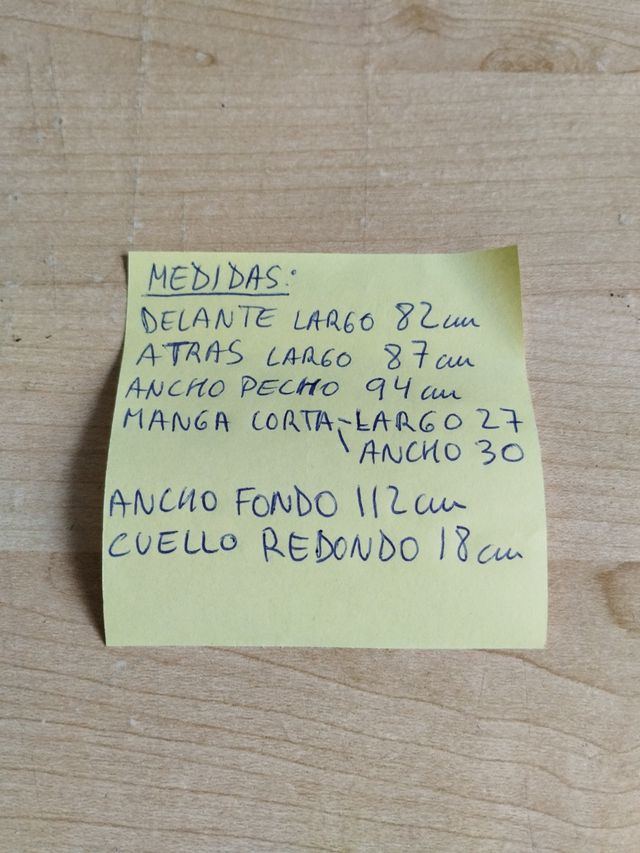 MEDIDAS:
DELANTE LARGO 82cm
ATRAS LARGO 87cm
ANCHO PECHO 94cm
MANGA CORTA-LARGO 27
ANCHO 30
ANCHO FONDO 112cm
CUELLO REDONDO 18cm